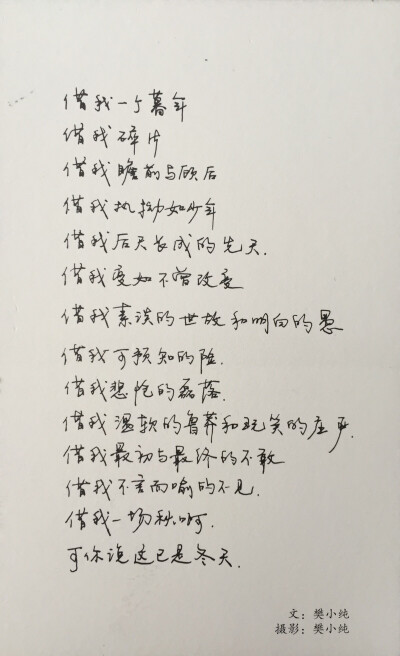 借我一个暮年
借我碎片
借我瞻前与顾后
借我执拗如少年
借我后天长成的先天.
借我变如不曾改变
借我素淡的世故和明白的愚
借我可预知的险.
借我悲怆的磊落
借我温软的鲁莽和玩笑的庄严.
借我最初与最终的不敢
借我不言而喻的不见.
借我一场秋啊.
可你说这已是冬天.
文：樊小纯
摄影：樊小纯